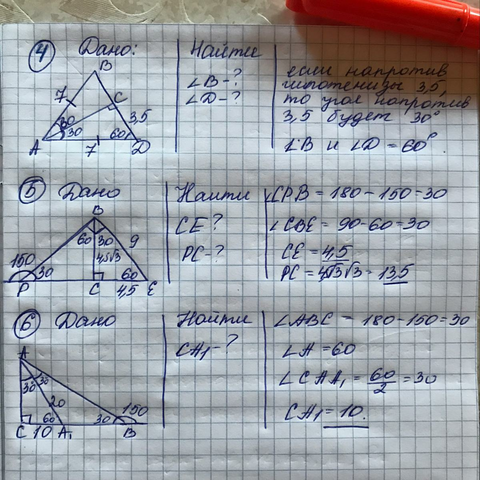 4 Дано: Найти
B
∠B-?
∠D-?
если напротив
гипотенизы 3,5,
то угол напротив
3,5 будет 30°
∠B и ∠D = 60°.
7
C
3,5
30
30
60
A
7
D
5 Дано Найти
CE?
PC-?
∠CPB = 180-150=30
∠CBE = 90-60=30
CE = 4,5
PC = 4,5√3√3 = 13,5
B
60 30 9
4,5√3
150
30
60
P C 4,5 E
6 Дано Найти
CA₁-?
∠ABC = 180-150=30
∠A = 60
∠CAA₁ = 60/2 = 30
CA₁ = 10.
A
30 30
20
60
30
150
C 10 A₁ B